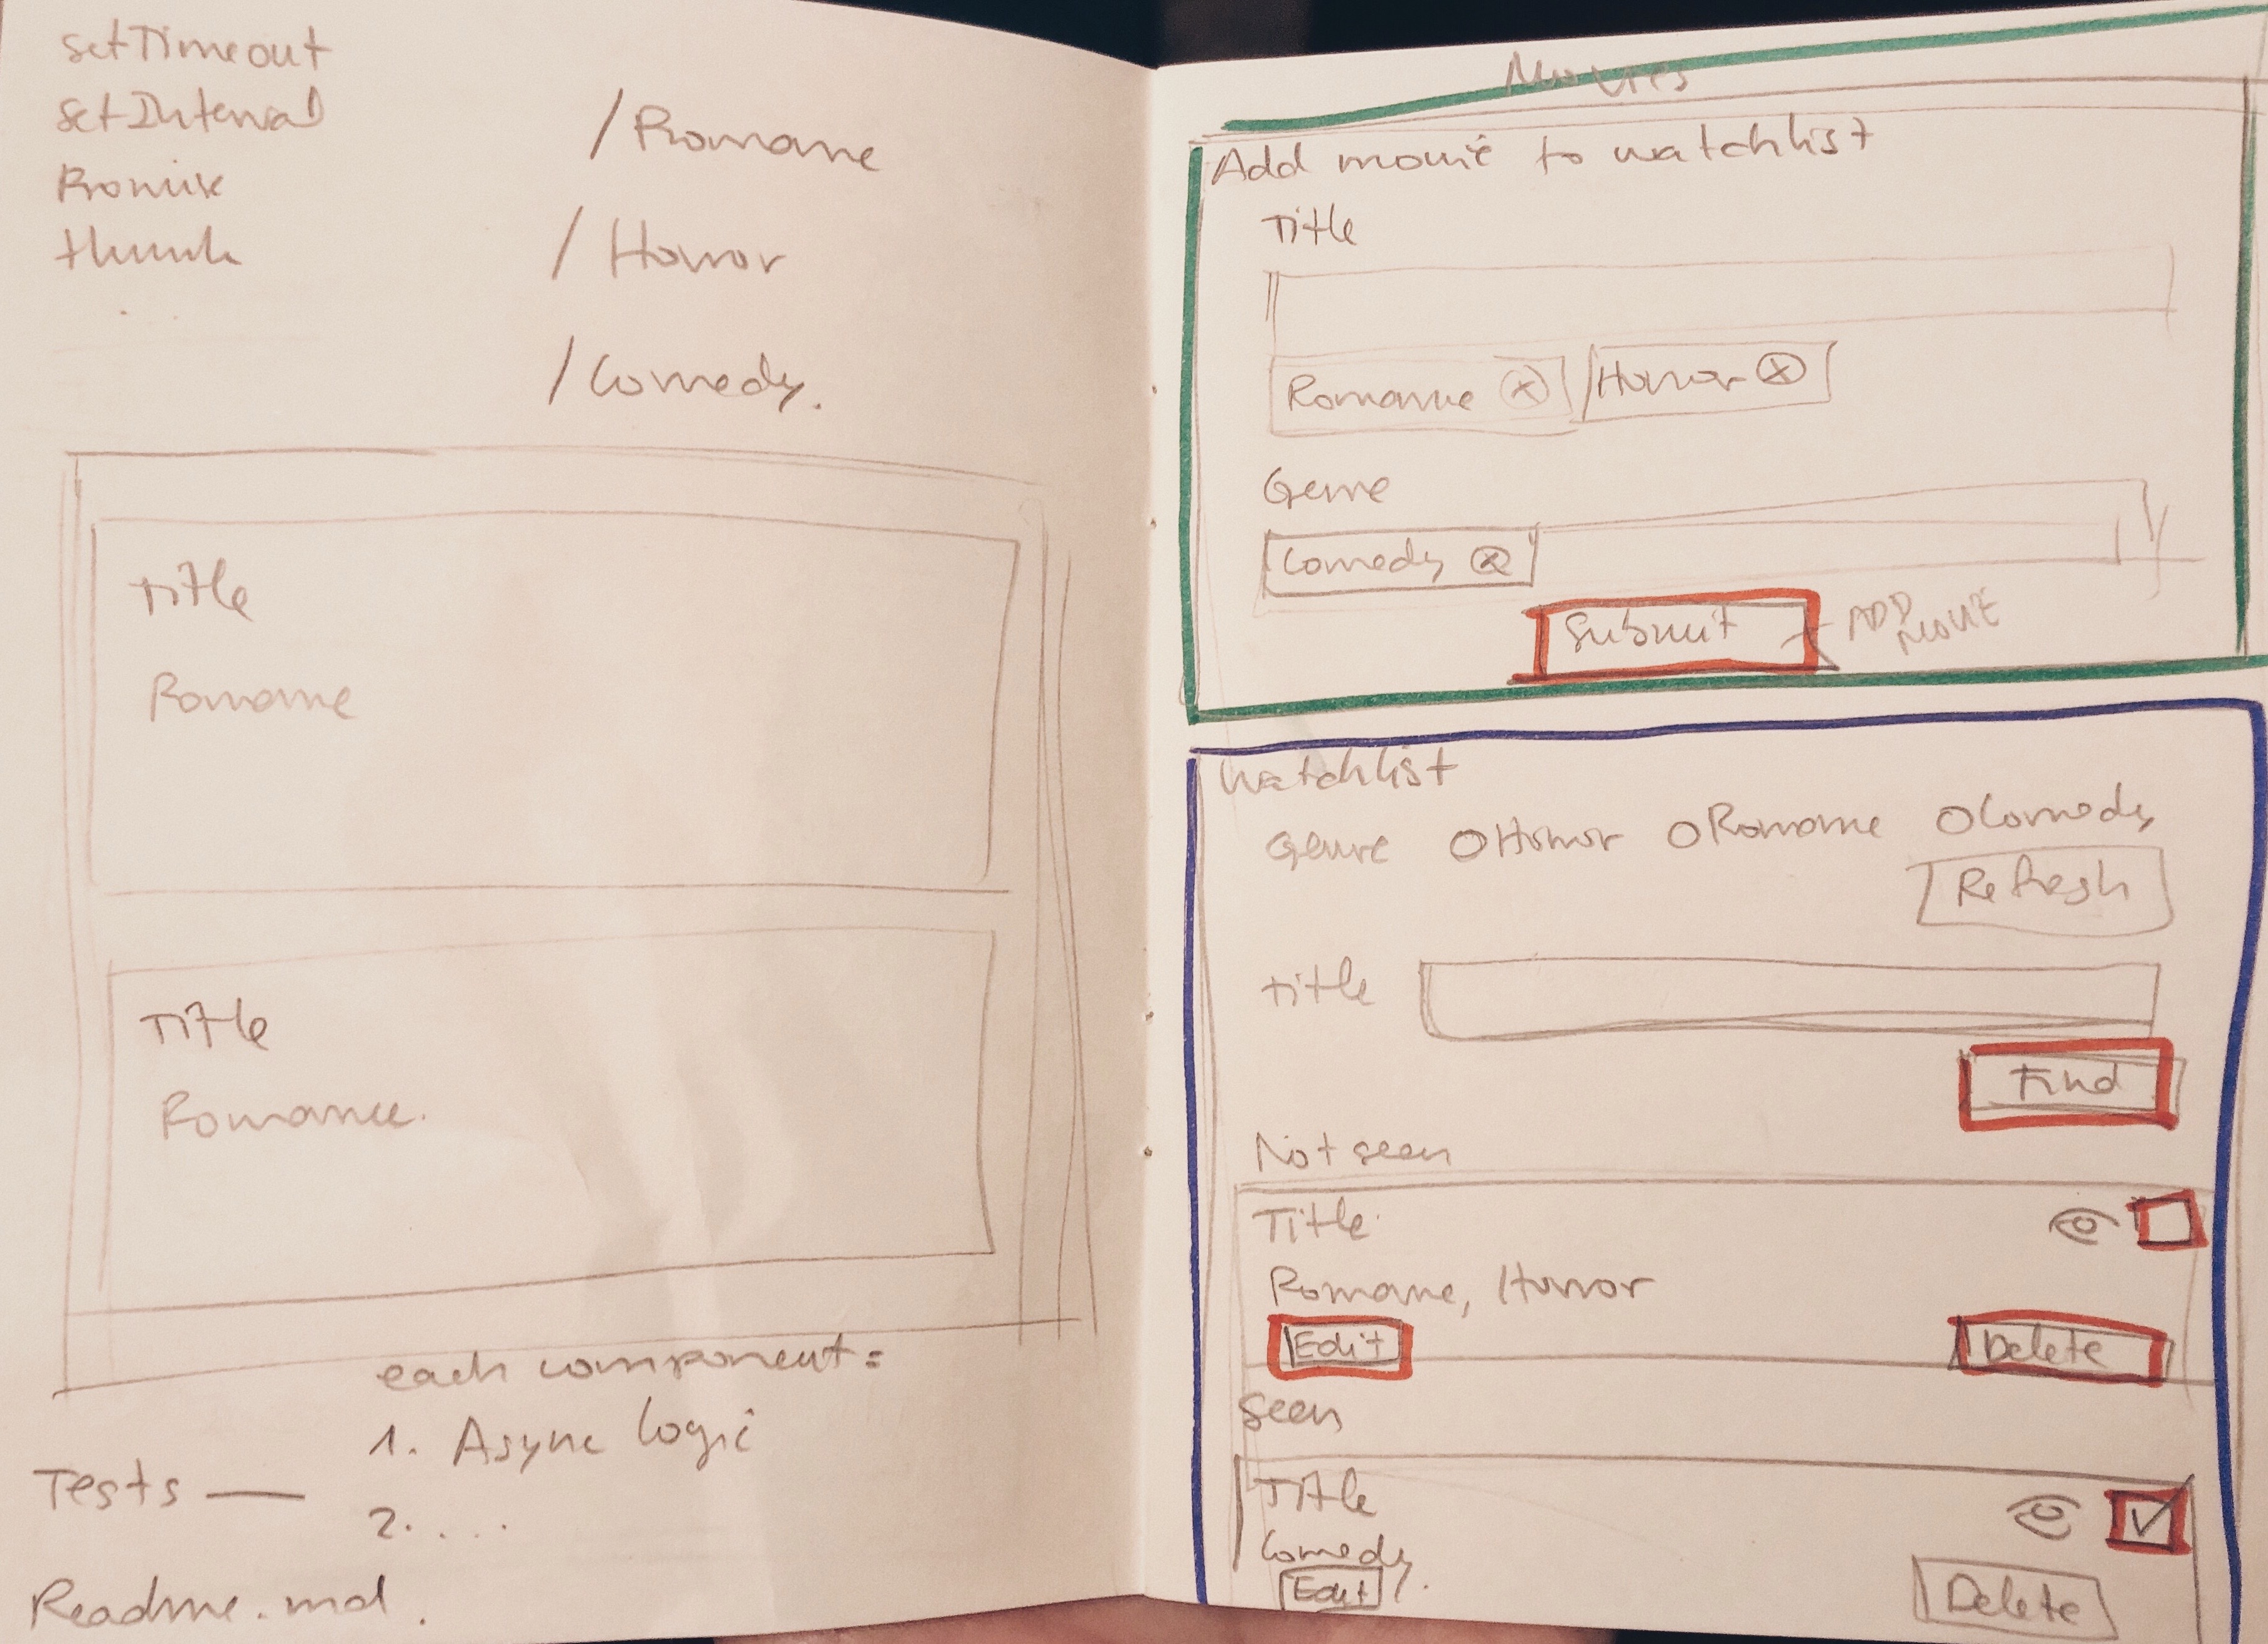 setTimeout
setInterval
Promise
thunk
/Romance
/Horror
/Comedy.
Title
Romance
Title
Romance.
each component:
1. Async logic
2. ...
Tests —
Readme.md.
Movies
Add movie to watchlist
Title
Romance ⓧ Horror ⓧ
Genre
Comedy ⓧ
Submit ADD
MOVIE
Watchlist
Genre O Horror O Romance O Comedy
Refresh
Title
Find
Not seen
Title
Romance, Horror
Edit Delete
Seen
Title
Comedy
Edit Delete